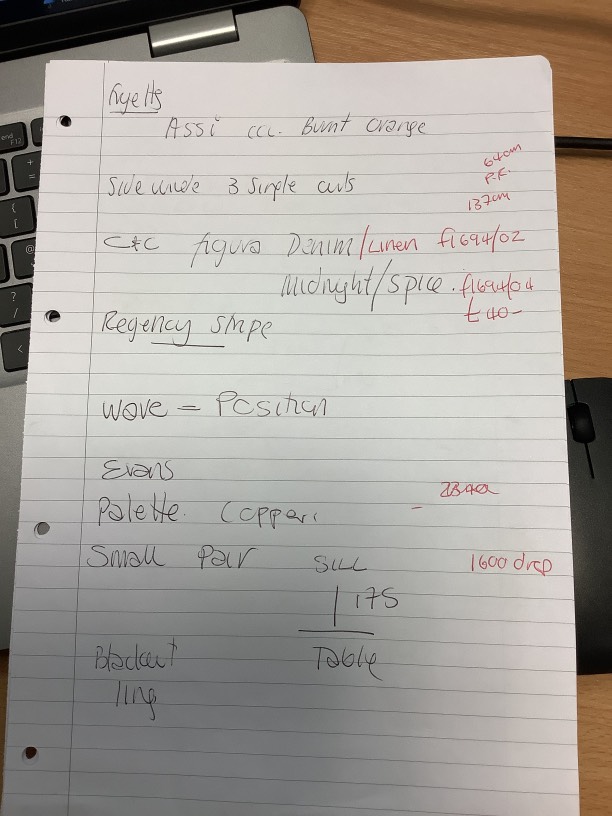 Assi ccc. Burnt Orange
64cm
P.F.
Side wide 3 single curts
137cm
C&C figura Denim/Linen f1694/02
Midnight/Spice. f1694/04
£40-
Regency stripe
Wave = Position
Evans
Palette. Copper.
Small Pair Sill 1600 drop
175
Blackout Table
ling